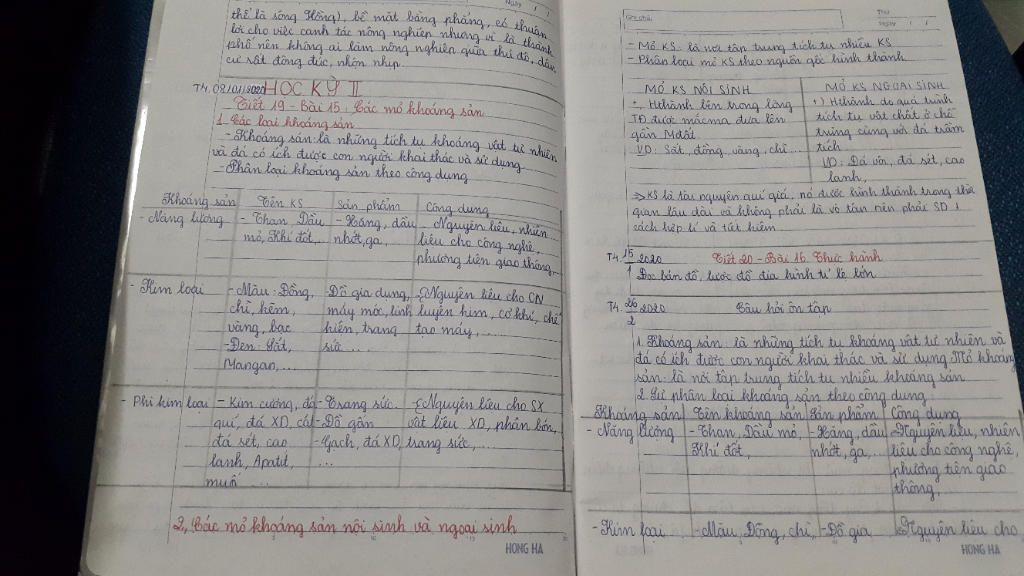 Ngày / /
thể là sông Hồng), bề mặt bằng phẳng, có thuận
lợi cho việc canh tác nông nghiệp nhưng vì là thành
phố nên không ai làm nông nghiệp giữa thủ đô, dân
cư rất đông đúc, nhộn nhịp.
T4, 08/01/2020 HỌC KỲ II
Tiết 19 - Bài 15: Các mỏ khoáng sản
1. Các loại khoáng sản
- Khoáng sản: là những tích tụ khoáng vật tự nhiên
và đá có ích được con người khai thác và sử dụng
- Phân loại khoáng sản theo công dụng
Khoáng sản Tên KS Sản phẩm Công dụng
- Năng lượng - Than, Dầu - Xăng, dầu - Nguyên liệu, nhiên
mỏ, Khí đốt, nhớt, ga, liệu cho công nghệ,
phương tiện giao thông,
- Kim loại - Màu: Đồng, Đồ gia dụng, - Nguyên liệu cho CN
chì, kẽm, máy móc, linh luyện kim, cơ khí, chế
vàng, bạc kiện, trang tạo máy, ...
- Đen: Sắt, sức ...
Mangan, ...
- Phi kim loại - Kim cương, đá - Trang sức. - Nguyên liệu cho SX
quí, đá XD, cát - Đồ gốm vật liệu XD, phân bón,
đá sét, cao - Gạch, đá XD, trang sức, ...
lanh, Apatit, ...
muối ...
2, Các mỏ khoáng sản nội sinh và ngoại sinh
HONG HA
Ghi chú:
Thứ
Ngày / /
- Mỏ KS: là nơi tập trung tích tụ nhiều KS
- Phân loại mỏ KS theo nguồn gốc hình thành
MỎ KS NỘI SINH MỎ KS NGOẠI SINH
+, Hthành bên trong lòng +) Hthành do quá trình
TĐ được mắcma đưa lên tích tụ vật chất ở chỗ
gần Mđất trũng cùng với đá trầm
VD: Sắt, đồng, vàng, chì... tích
VD: Đá vôi, đá sét, cao
lanh,
=> KS là tài nguyên quí giá, nó được hình thành trong thời
gian lâu dài và không phải là vô tận nên phải SD 1
cách hợp lí và tiết kiệm
T4, 15/1 2020 Tiết 20 - Bài 16 Thực hành
Đọc bản đồ, lược đồ địa hình tỉ lệ lớn
T4, 26/2 2020 Câu hỏi ôn tập
1. Khoáng sản: là những tích tụ khoáng vật tự nhiên và
đá có ích được con người khai thác và sử dụng Mỏ khoáng
sản: là nơi tập trung tích tụ nhiều khoáng sản
2. Sự phân loại khoáng sản theo công dụng
Khoáng sản Tên khoáng sản Sản phẩm Công dụng
- Năng lượng - Than, Dầu mỏ, - Xăng, dầu - Nguyên liệu, nhiên
Khí đốt, nhớt, ga, ... liệu cho công nghệ,
phương tiện giao
thông,
- Kim loại - Màu, Đồng, chì, - Đồ gia - Nguyên liệu cho
HONG HA